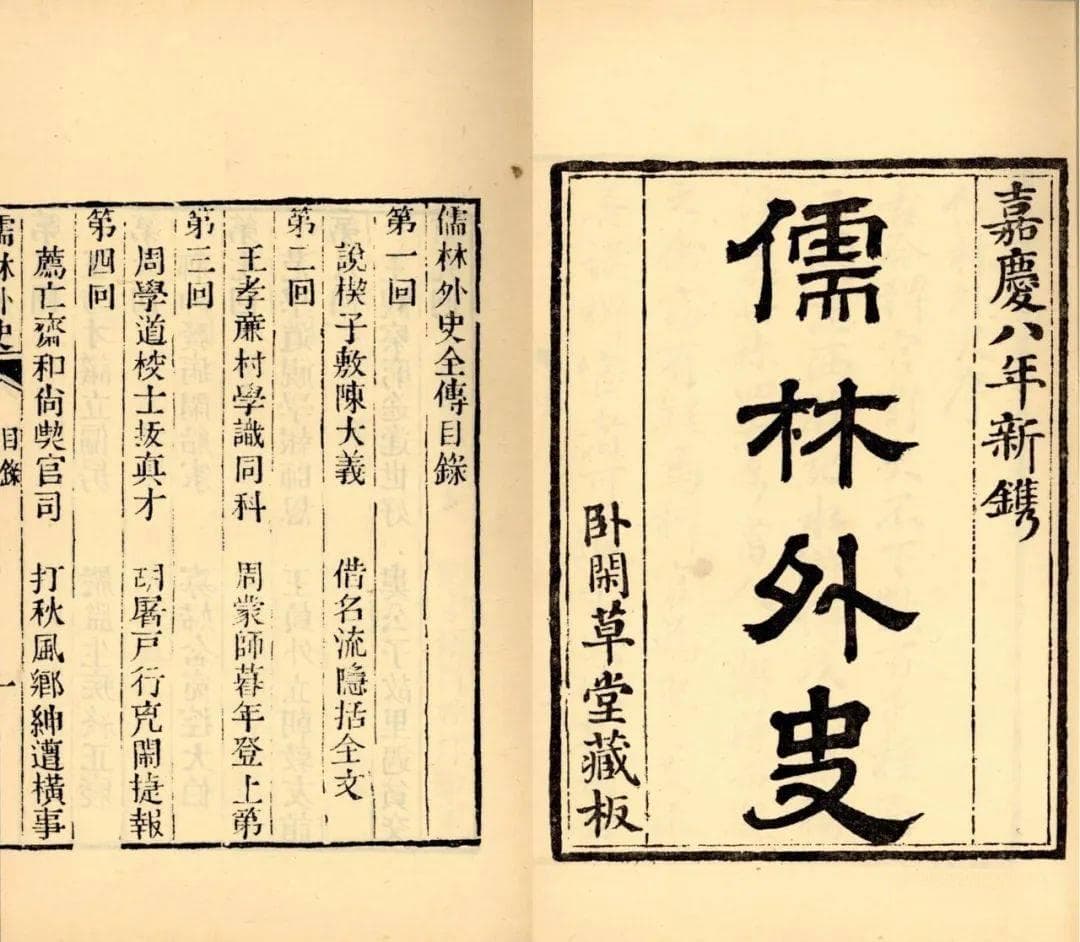 嘉慶八年新鐫
儒林外史
卧閑草堂藏板
儒林外史全傳目錄
第一回
說楔子敷陳大義 借名流隱括全文
第二回
王孝廉村學識同科 周蒙師暮年登上第
第三回
周學道校士拔真才 胡屠戶行兇鬧捷報
第四回
薦亡齋和尙喫官司 打秋風鄉紳遭橫事
儒林外史 目錄 一